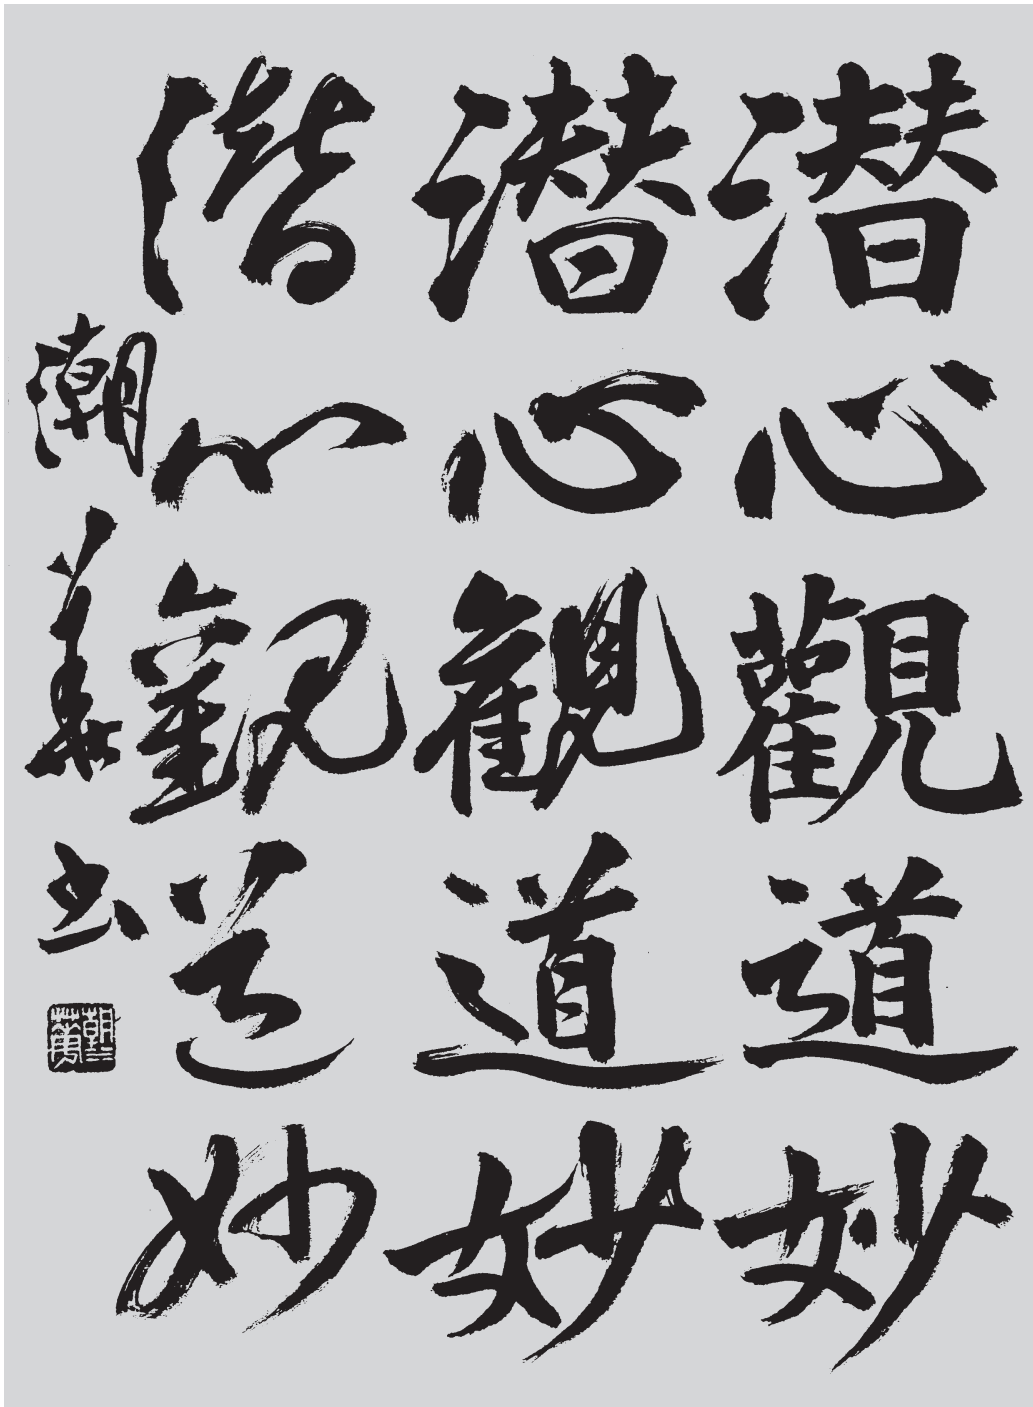 潜心觀道妙
潜心觀道妙
潜心觀道妙
潮書